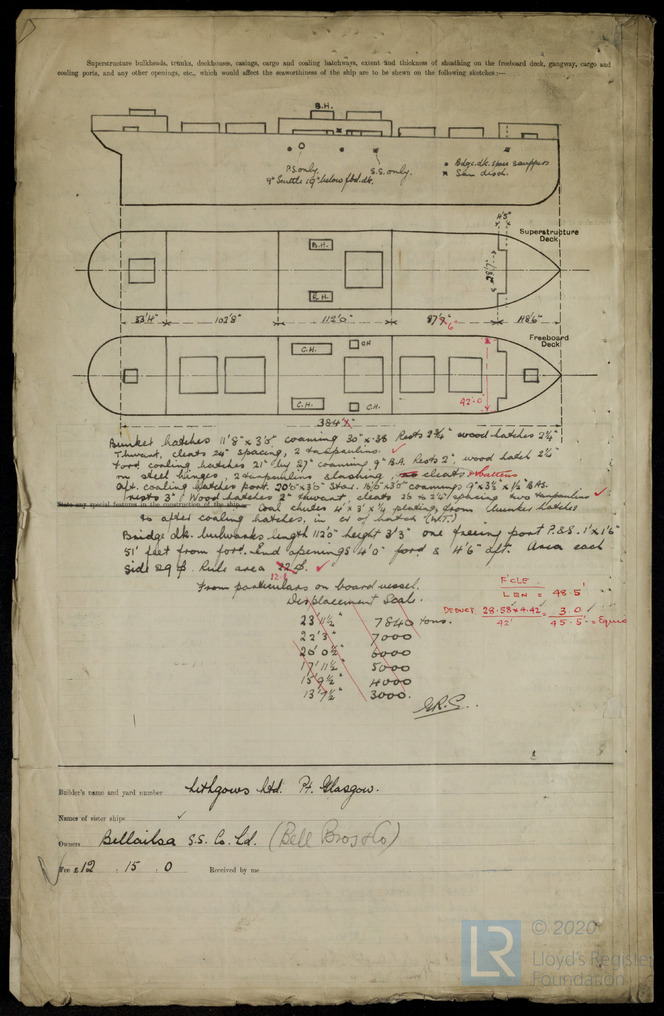 Superstructure bulkheads, trunks, deckhouses, casings, cargo and coaling hatchways, extent and thickness of sheathing on the freeboard deck, gangway, cargo and
coaling ports, and any other openings, etc., which would affect the seaworthiness of the ship are to be shewn on the following sketches:—
B.H.
P.S. only.
9" Scuttle 19" below fbd. dk.
S.S. only.
Bdge. dk. space scuppers
San disch.
4'5"
Superstructure
Deck
B.H.
B.H.
28'7"
33'4"
102'8"
112'0"
87'
6"
48'6"
Freeboard
Deck
C.H.
CH
C.H.
C.H.
42'.0"
384'
Bunker hatches 11'8" x 3'0" coaming 30" x .38 Rests 2¾" wood hatches 2½"
Thwart, cleats 24" spacing, 2 tarpaulins.
Ford. coaling hatches 21" by 27" coaming 9" B.A. Rests 2", wood hatch 2½"
on steel hinges, 2 tarpaulins slashing, cleats & battens
Aft. coaling hatches port. 20'6" x 3'6" Star. 16'6" x 3'0" coamings 9" x 3½" x ½" B.A.
rests 3" Wood hatches 2" thwart, cleats spacing two tarpaulins
State any special features in the construction of the ship:—
Coal chutes 4' x 3' x ¼ plating, from bunker hatches
to after coaling hatches, in of hatch
Bridge dk. bulwarks length 112'0" height 3'3" one freeing port P.&S. 1' x 1'6"
51' feet from ford. End openings 4'0" ford & 4'6" Aft. Area each
side 29 Rule area
12.8
From particulars on board vessel.
Displacement Scale.
23' 11½" 7840 tons.
22' 3" 7000
20' 0½" 6000
17' 11½ 5000
15' 9½" 4000
13' 7½" 3000.
F'CLE
LEN = 48.5'
DEDUCT 28.58' x 4.42' = 3.0'
42' 45.5' = Equiv
Builder's name and yard number Lithgows Ltd. Pt. Glasgow.
Names of sister ships
Owners Bellailsa S.S. Co. Ld. (Bell Bros & Co)
Fee £12 : 15 : 0 Received by me
LR
© 2020
Lloyd's Register
Foundation